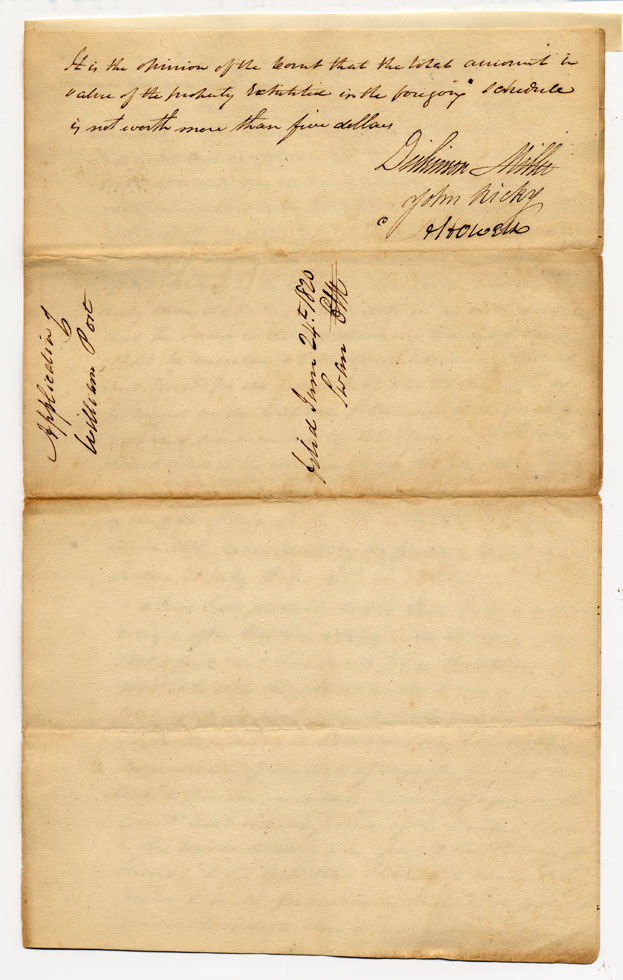 It is the opinion of the Court that the total amount in
value of the property Exhibited in the foregoing schedule
is not worth more than five dollars
Dickinson Miller
John Ricky
Howell
Application of
William Post
filed June 24th 1820